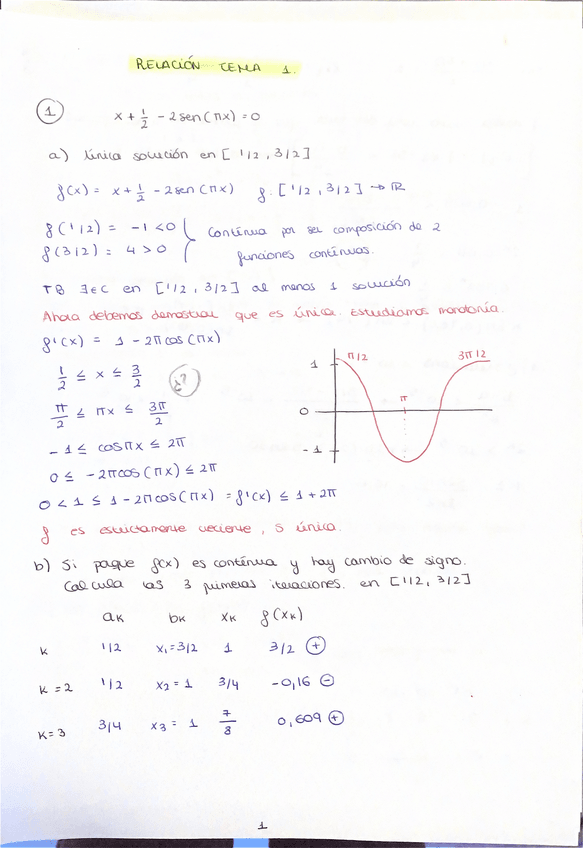 RELACIÓN TEMA 1.
1 x + 1/2 - 2sen(πx) = 0
a) Única solución en [1/2, 3/2]
f(x) = x + 1/2 - 2sen(πx) f: [1/2, 3/2] → ℝ
f(1/2) = -1 < 0
f(3/2) = 4 > 0
Contínua por ser composición de 2
funciones contínuas.
TB ∃∈C en [1/2, 3/2] al menos 1 solución
Ahora debemos demostrar que es única. Estudiamos monotonía.
f'(x) = 1 - 2πcos(πx)
1/2 ≤ x ≤ 3/2 ¿?
π/2 ≤ πx ≤ 3π/2
-1 ≤ cosπx ≤ 2π
0 ≤ -2πcos(πx) ≤ 2π
0 < 1 ≤ 1 - 2πcos(πx) = f'(x) ≤ 1 + 2π
1 π/2 3π/2
π
0
-1
f es estrictamente creciente, S única.
b) Si porque f(x) es contínua y hay cambio de signo.
Calcula las 3 primeras iteraciones. en [1/2, 3/2]
ak bk xk f(xk)
k 1/2 x₁=3/2 1 3/2 +
k=2 1/2 x₂=1 3/4 -0,16 -
k=3 3/4 x₃=1 7/8 0,609 +
1